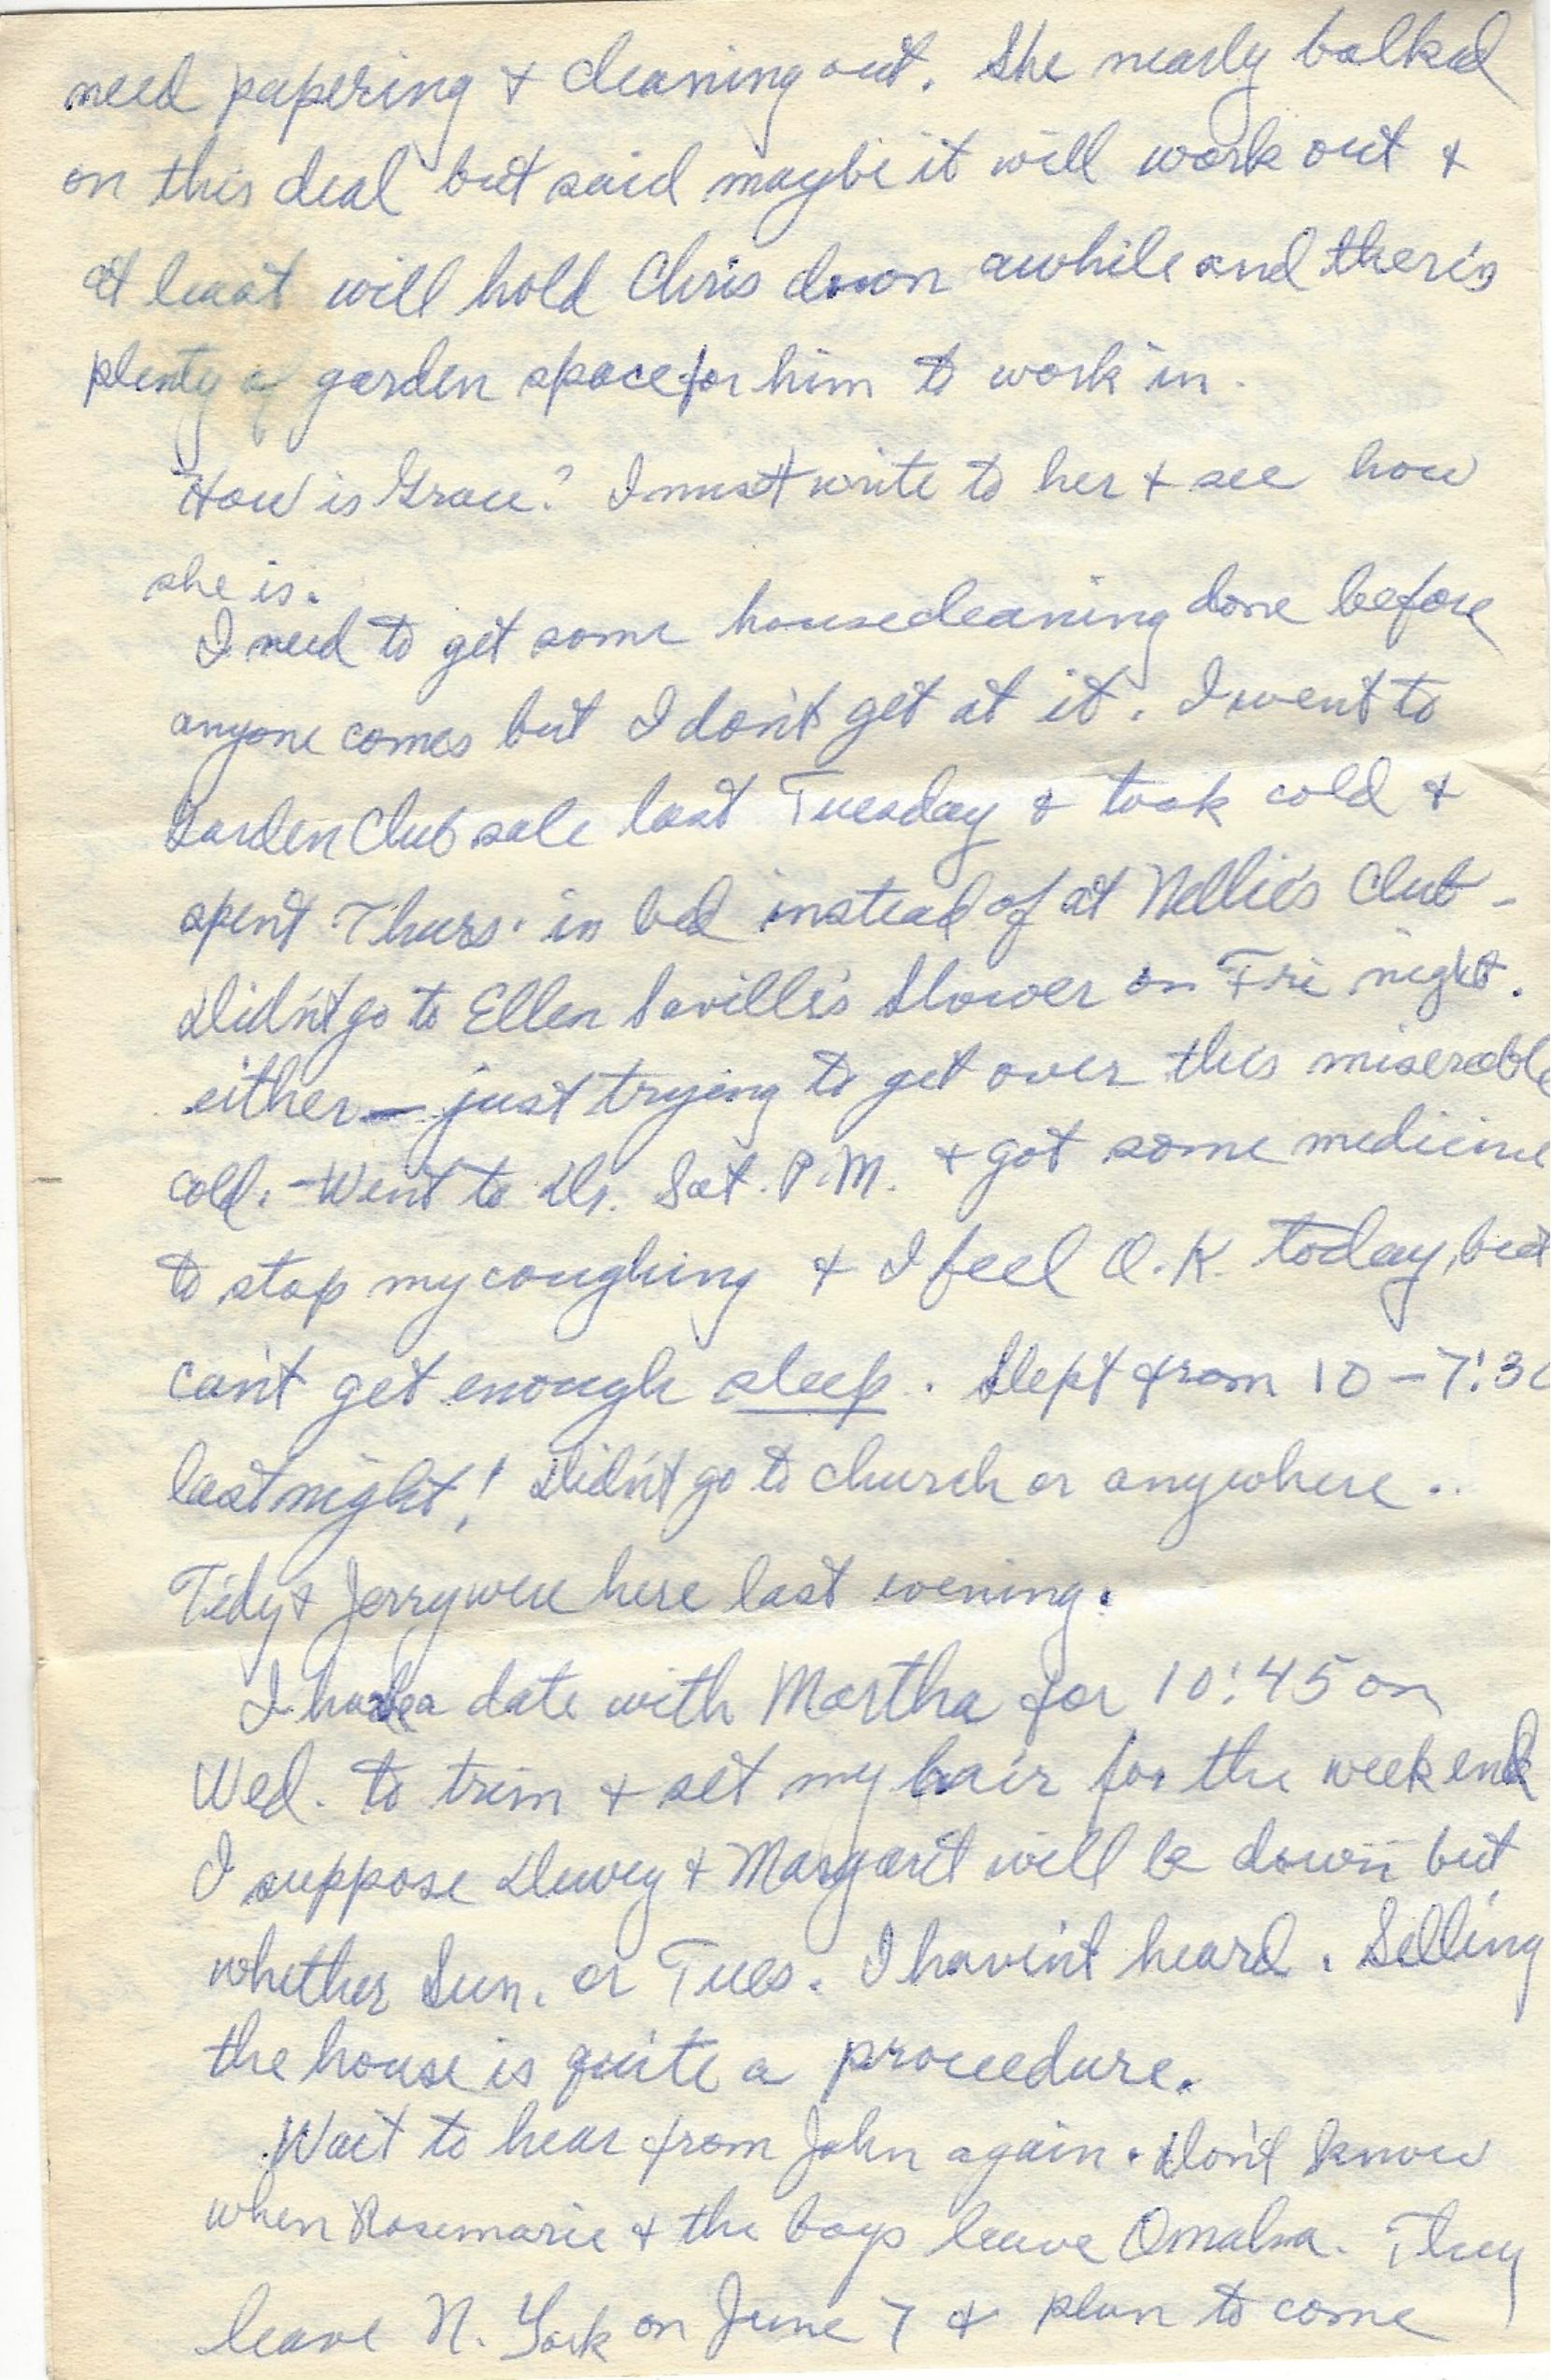 need papering & cleaning out. She nearly balked
on this deal but said maybe it will work out &
at least will hold Chris down awhile and there's
plenty of garden space for him to work in.
How is Grace? I must write to her & see how
she is.
I need to get some housecleaning done before
anyone comes but I don't get at it. I went to
Garden Club sale last Tuesday & took cold &
spent Thurs. in bed instead of at Nellie's Club -
Didn't go to Ellen Saville's Shower on Fri night.
either — just trying to get over this miserable
cold. - Went to Dr. Sat. P.M. & got some medicine
to stop my coughing & I feel O.K. today, but
can't get enough sleep. Slept from 10 - 7:30
last night! Didn't go to church or anywhere..
Tidy & Jerry were here last evening.
I have a date with Martha for 10:45 on
Wed. to trim & set my hair for the week end
I suppose Dewey & Margaret will be down but
whether Sun. or Tues. I haven't heard. Selling
the house is quite a proceedure.
Wait to hear from John again. Don't know
when Rosemarie & the boys leave Omaha. They
leave N. York on June 7 & plan to come